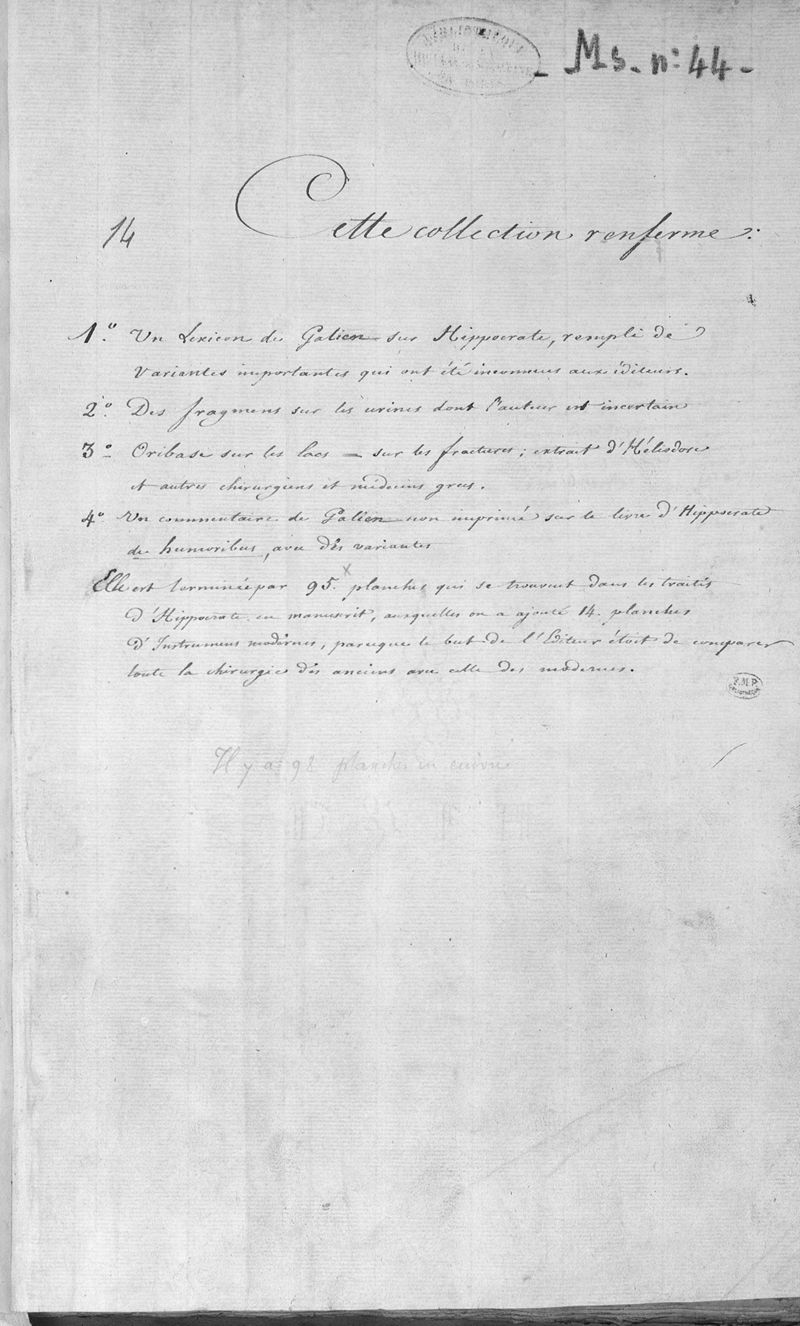 BIBLIOTHEQUE
DE
- Ms. n° 44 -
14
Cette collection renferme:
1° Un Lexicon de Galien sur Hippocrate, rempli de
variantes importantes qui ont été inconnues aux éditeurs.
2° Des fragmens sur les urines dont l'auteur est incertain
3° Oribase sur les lacs — sur les fractures; extrait d'Héliodore
et autres chirurgiens et médecins grecs.
4° Un commentaire de Galien non imprimé sur le livre d'Hippocrate
de humoribus, avec des variantes
Elle est terminée par 95.x planches qui se trouvent dans les traités
d'Hippocrate en manuscrit, auxquelles on a ajouté 14. planches
d'Instrumens modernes, parceque le but de l'Editeur étoit de comparer
toute la chirurgie des anciens avec celle des modernes.
F.M.P.
Il y a 98 planches en cuivre